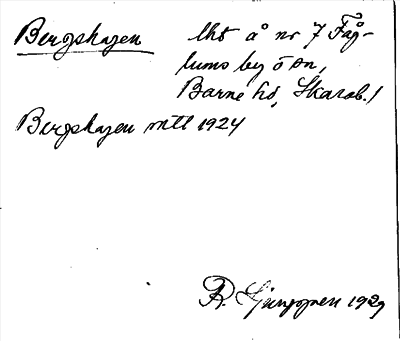 Bergshagen lht å nr 7 Fåg-
lums by o sn,
Barne hd, Skarab. l
Bergshagen mtl 1924
R. Ljunggren 1929